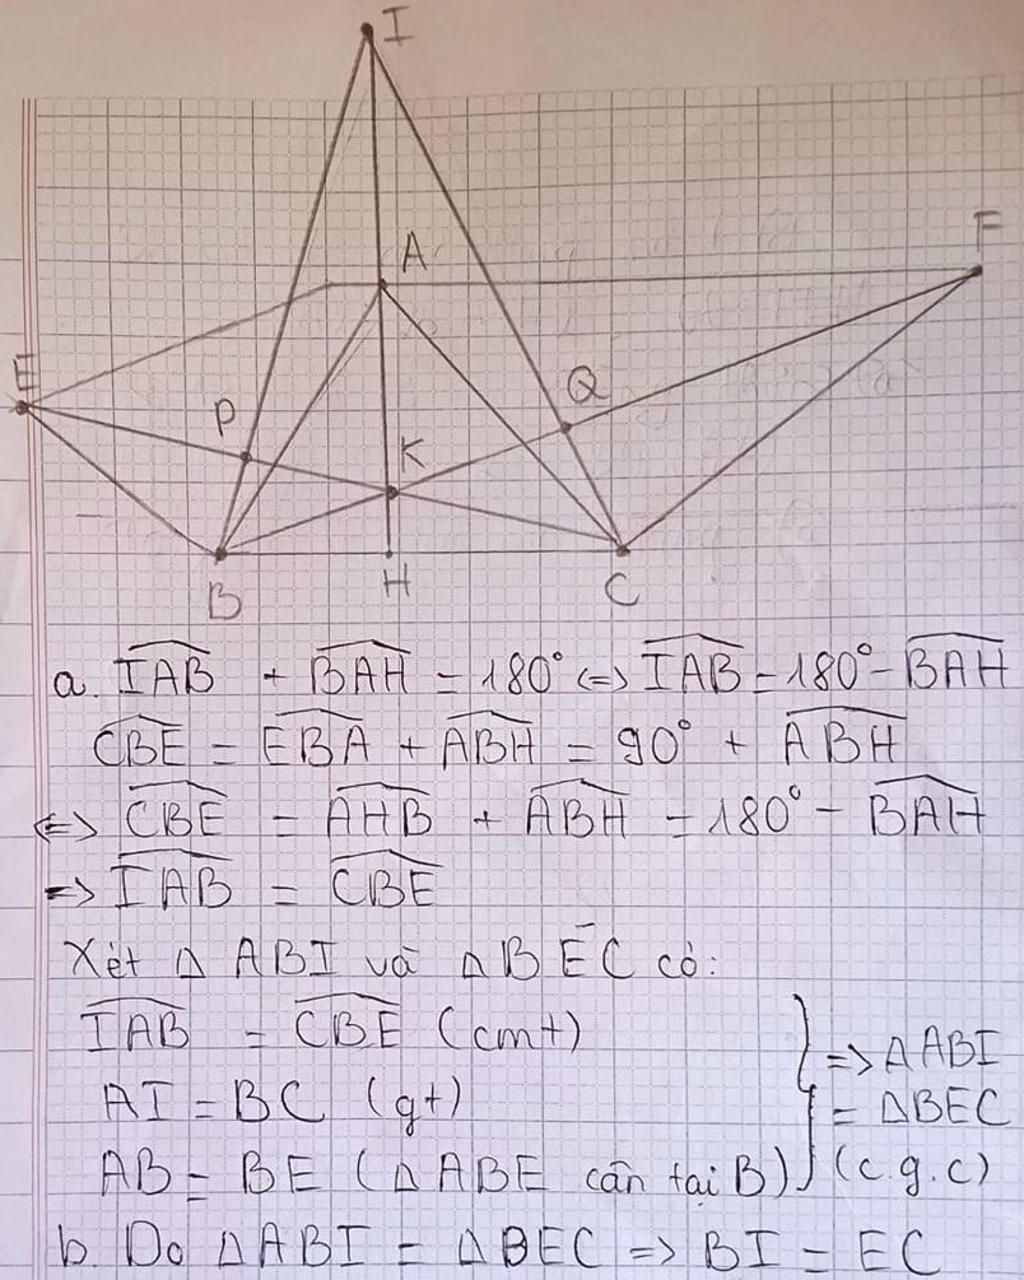 I
A
F
E
P
Q
K
B
H
C
a. IAB + BAH = 180° <=> IAB = 180° - BAH
CBE = EBA + ABH = 90° + ABH
<=> CBE = AHB + ABH = 180° - BAH
=> IAB = CBE
Xét Δ ABI và Δ BEC có:
IAB = CBE (cmt)
AI = BC (gt) => Δ ABI
= ΔBEC
AB = BE (Δ ABE cân tại B) (c.g.c)
b. Do Δ ABI = ΔBEC => BI = EC